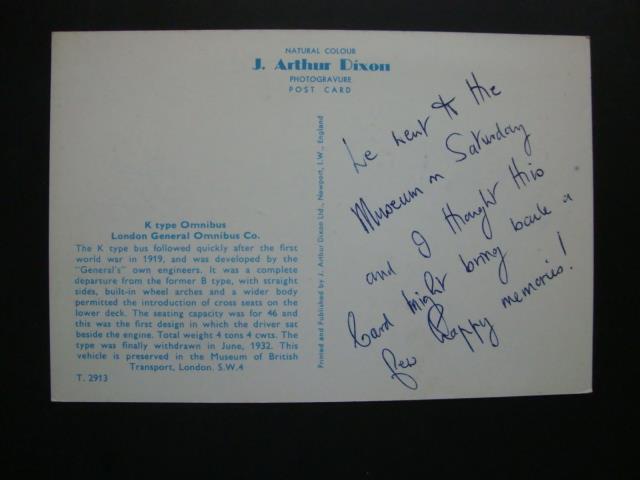 NATURAL COLOUR
J. Arthur Dixon
PHOTOGRAVURE
POST CARD
K type Omnibus
London General Omnibus Co.
The K type bus followed quickly after the first
world war in 1919, and was developed by the
"General's" own engineers. It was a complete
departure from the former B type, with straight
sides, built-in wheel arches and a wider body
permitted the introduction of cross seats on the
lower deck. The seating capacity was for 46 and
this was the first design in which the driver sat
beside the engine. Total weight 4 tons 4 cwts. The
type was finally withdrawn in June, 1932. This
vehicle is preserved in the Museum of British
Transport, London. S.W.4
T. 2913
Printed and Published by J. Arthur Dixon Ltd., Newport, I.W., England
We went to the
Museum on Saturday
and I thought this
Card might bring back a
few happy memories!